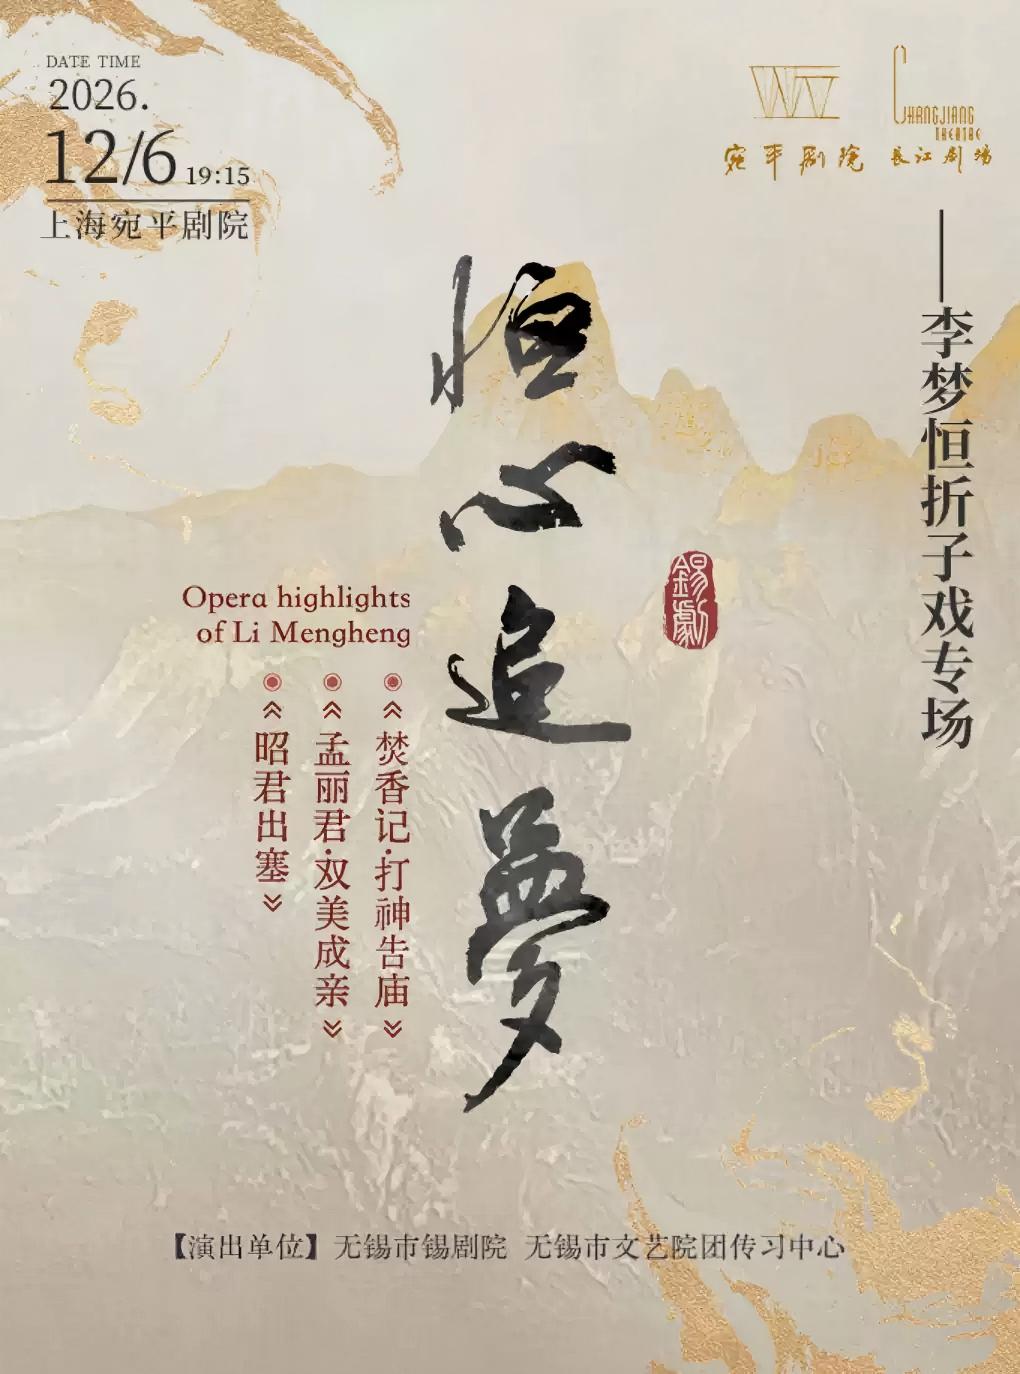 DATE TIME
2026.
12/6 19:15
上海宛平剧院
宛平剧院
CHANGJIANG
THEATRE
長江剧场
——李梦恒折子戏专场
恒心追夢
錫劇
Opera highlights
of Li Mengheng
焚香记·打神告庙
孟丽君·双美成亲
昭君出塞
【演出单位】无锡市锡剧院 无锡市文艺院团传习中心